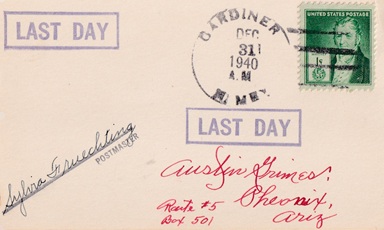 LAST DAY
GARDINER
DEC
31
1940
A.M
N. MEX.
UNITED STATES POSTAGE
1¢
LAST DAY
Sylvia Fruechting
POSTMASTER
Austin Grimes.
Route #5
Box 501
Pheonix,
Ariz